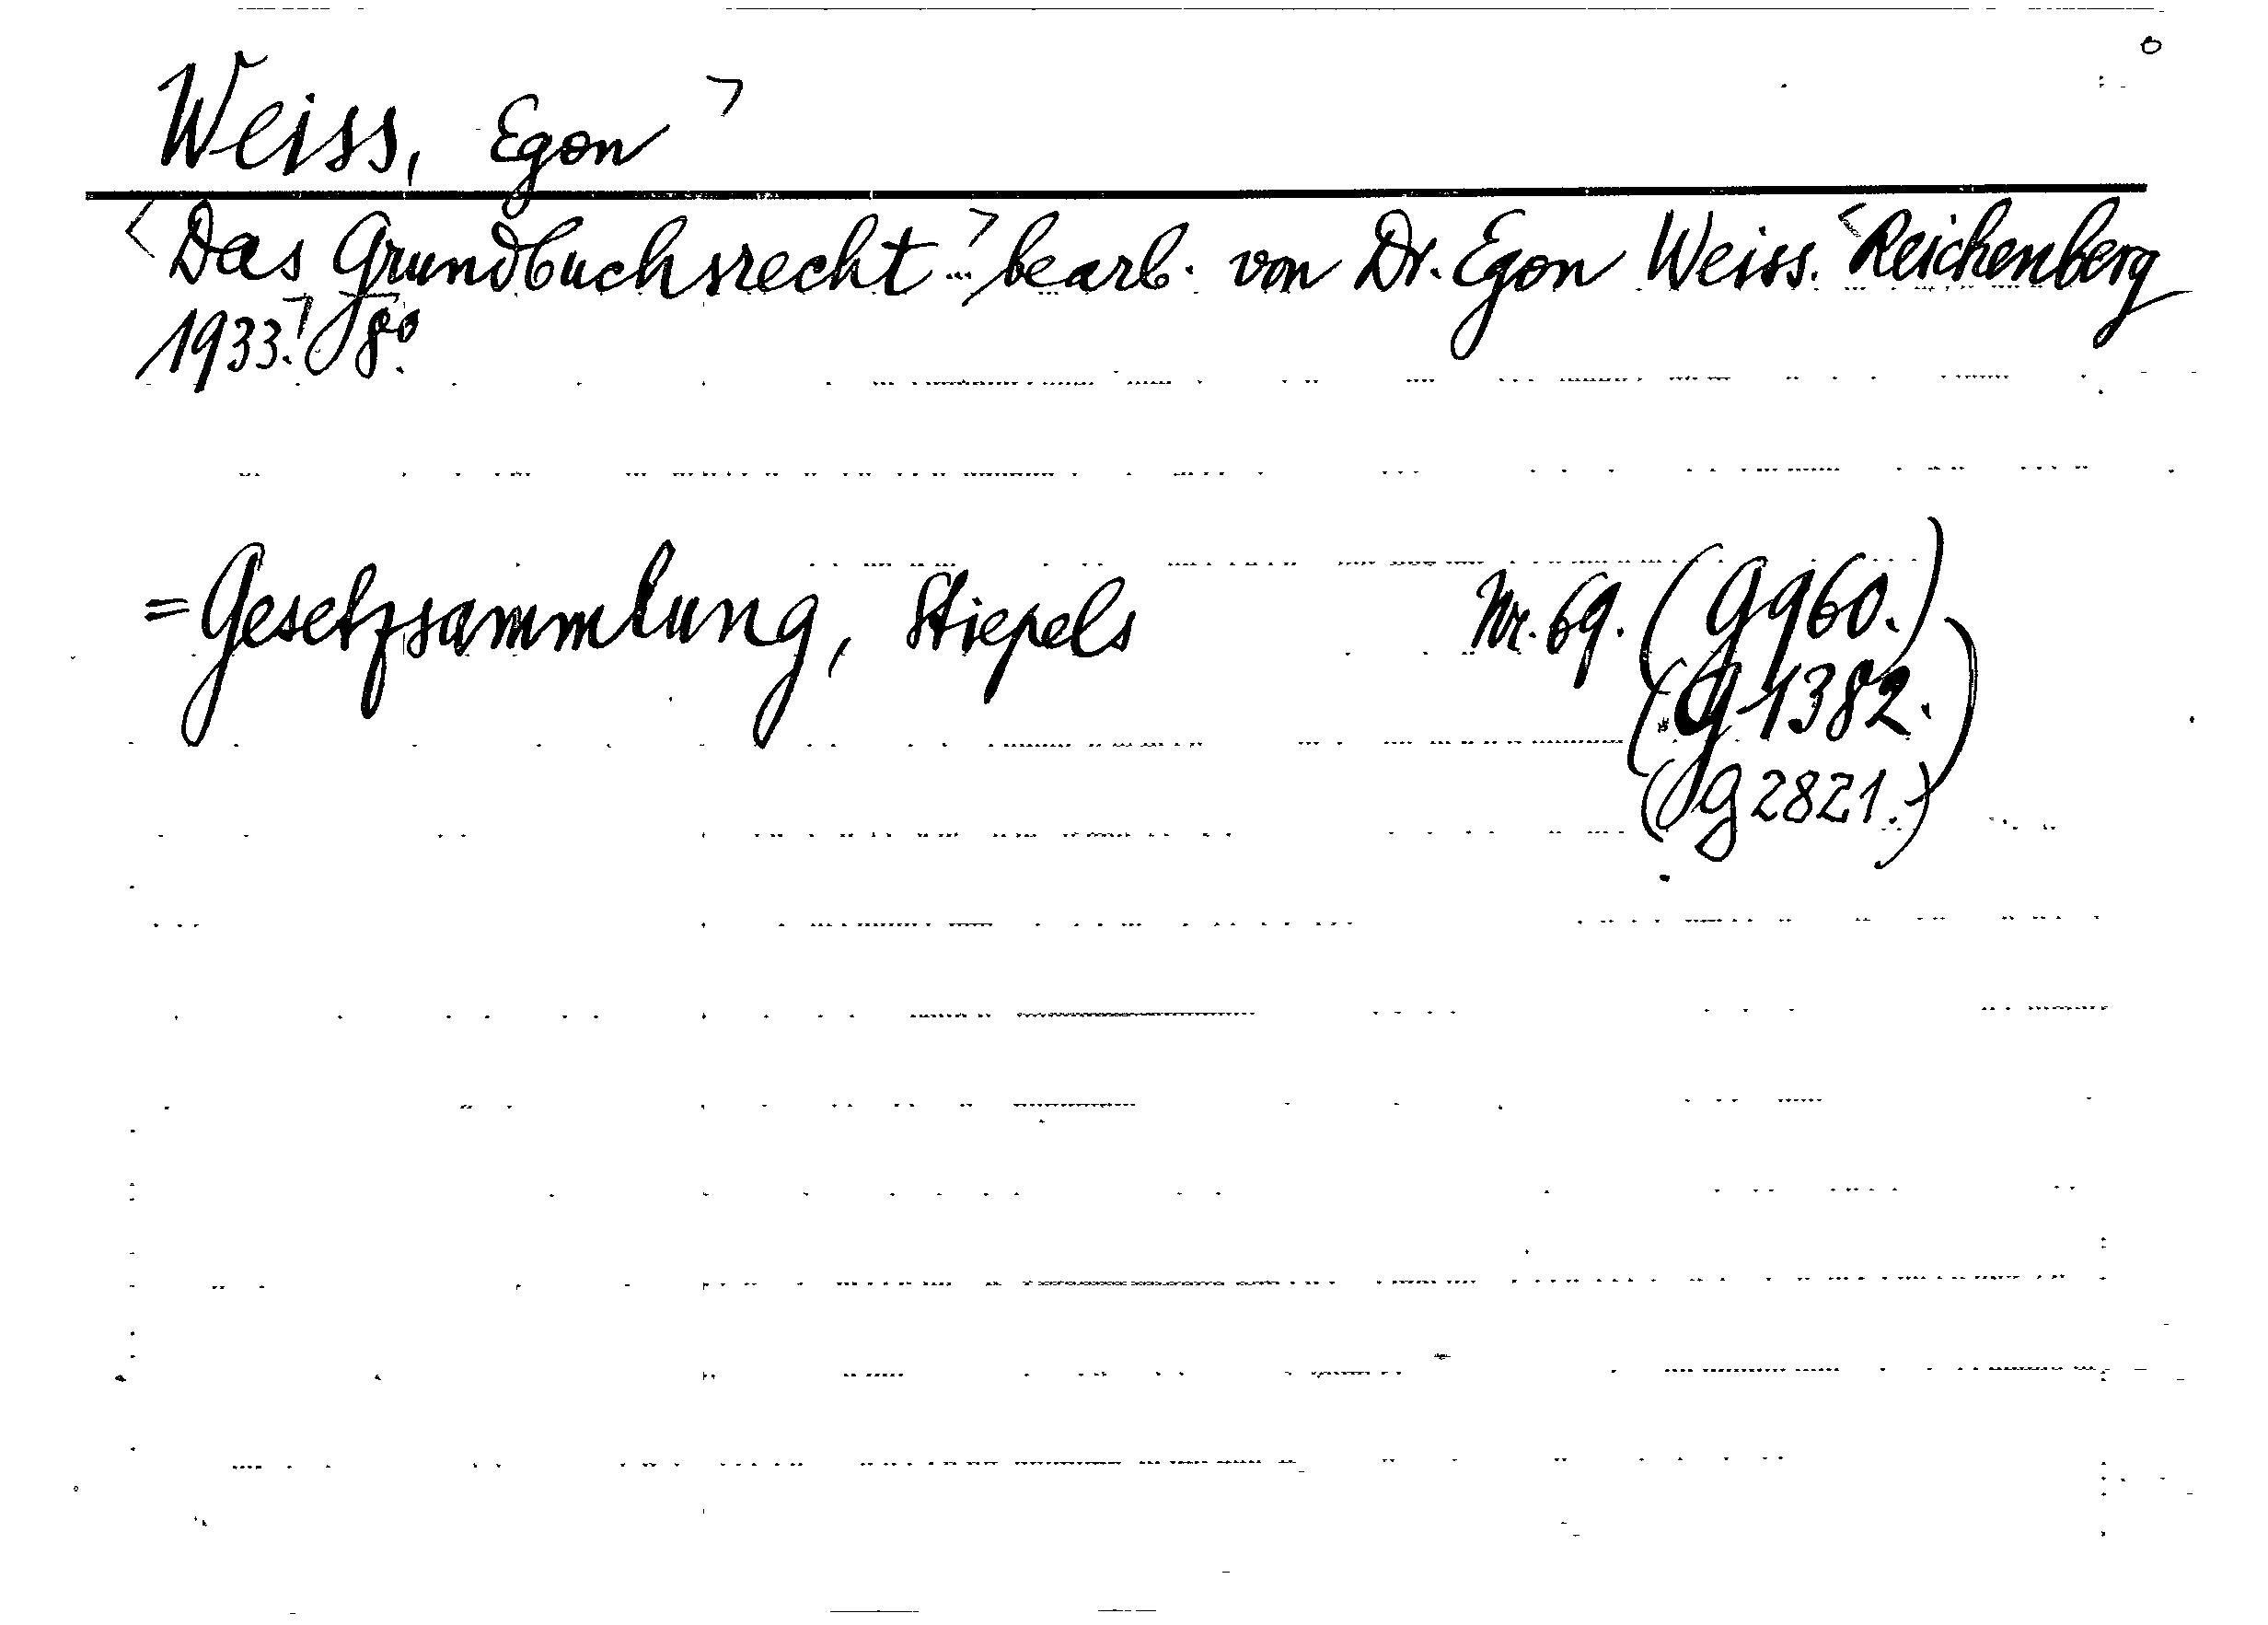 Weiss, Egon
Das Grundbuchsrecht ... bearb. von Dr. Egon Weiss. Reichenberg
1933. 8°.
= Gesetzsammlung, Stiepels Nr. 69. (G 960.)
(G 1382.)
(G 2821.)